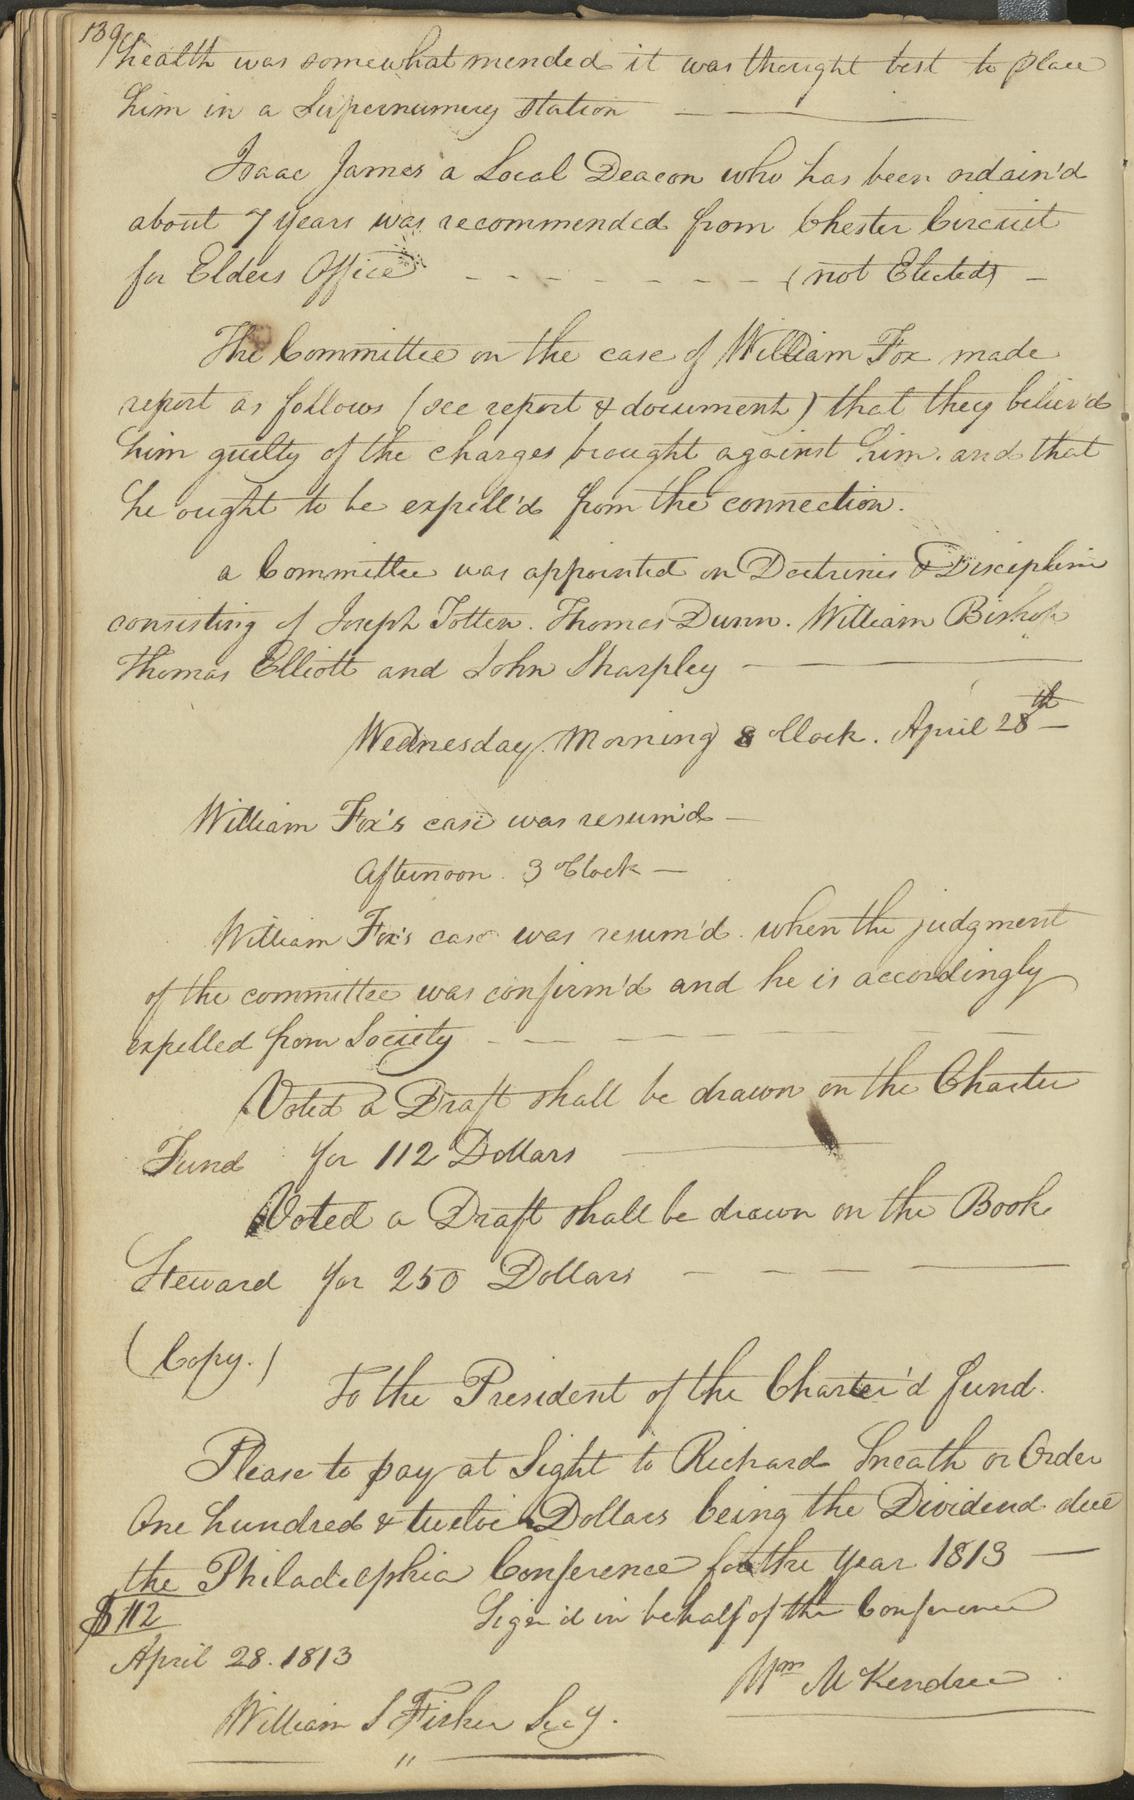 139
health was somewhat mended it was thought best to place
him in a Supernumery station
Isaac James a Local Deacon who has been ordain'd
about 7 years was recommended from Chester Circuit
for Elders Office - - - - - - - (not Elected) -
The Committee on the case of William Fox made
report as follows (see report & document) that they believ'd
him guilty of the charges brought against him. and that
he ought to be expell'd from the connection.
a Committee was appointed on Doctrines & Discipline
consisting of Joseph Totten. Thomas Dunn. William Bishop
Thomas Elliott and John Sharpley
Wednesday Morning 8 oClock. April 28th
William Fox's case was resum'd -
Afternoon. 3 oClock -
William Fox's case was resum'd. when the judgment
of the committee was confirm'd and he is accordingly
expelled from Society
Voted a Draft shall be drawn on the Charter
Fund for 112 Dollars
Voted a Draft shall be drawn on the Book
Steward for 250 Dollars
(Copy.)
To the President of the Charter'd fund.
Please to pay at Sight to Richard Sneath or Order
One hundred & twelve Dollars being the Dividend due
the Philadelphia Conference for the year 1813 —
$112 Sign'd in behalf of the Conference
April 28. 1813
Wm McKendree
William S Fisher Secy.